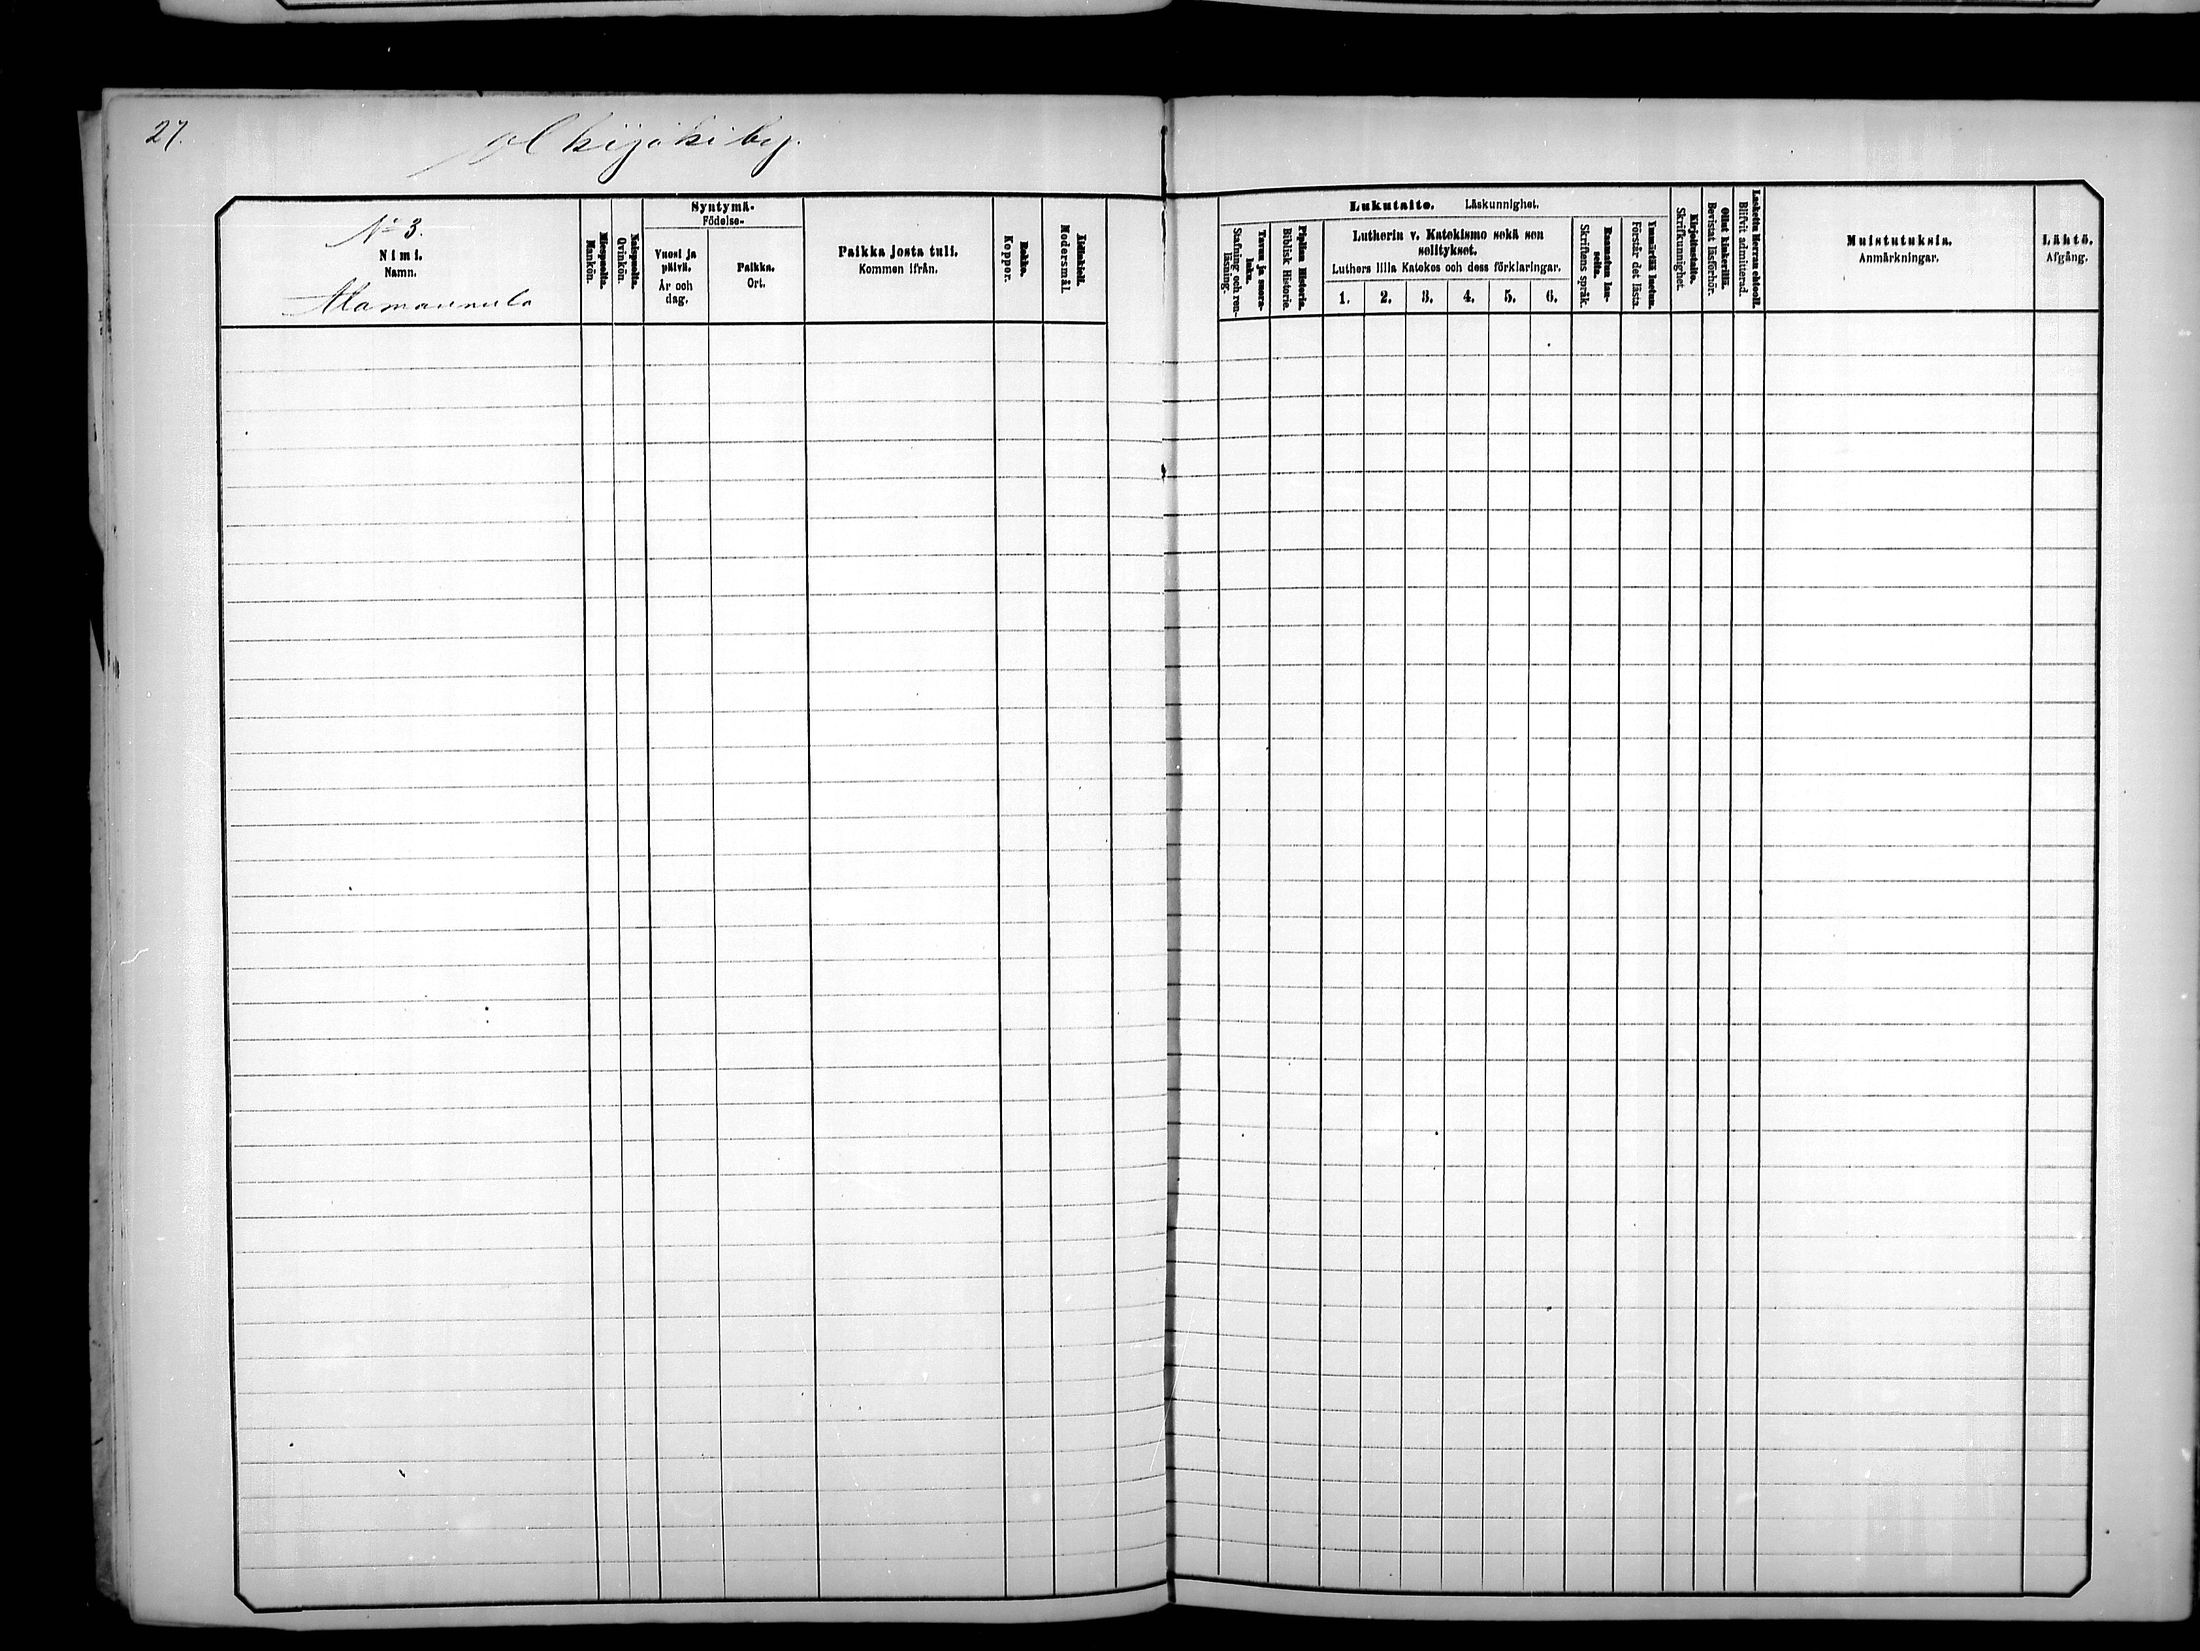 27.
Alkijoki by.
Nº 3.
Nimi.
Namn.
Alamannila
Miespuolia.
Mankön.
Naispuolia.
Qvinkön.
Syntymä-
Födelse-
Vuosi ja
päivä.
År och
dag.
Paikka.
Ort.
Paikka josta tuli.
Kommen ifrån.
Rokko.
Koppor.
Äidinkieli.
Modersmål.
Lukutaito. Läskunnighet.
Tavuu ja suora-
luku.
Stafning och ren-
läsning.
Piplian Historia.
Biblisk Historie.
Lutherin v. Katekismo sekä sen
selitykset.
Luthers lilla Katekes och dess förklaringar.
1. 2. 3. 4. 5. 6.
Raamatun lau-
seita.
Skriftens språk.
Ymmärtää luetun.
Förstår det lästa.
Kirjoitustaito.
Skrifkunnighet.
Ollut kinkerillä.
Bevistat läsförhör.
Laskettu Herran ehtooll.
Blifvit admitterad.
Muistutuksia.
Anmärkningar.
Lähtö.
Afgång.